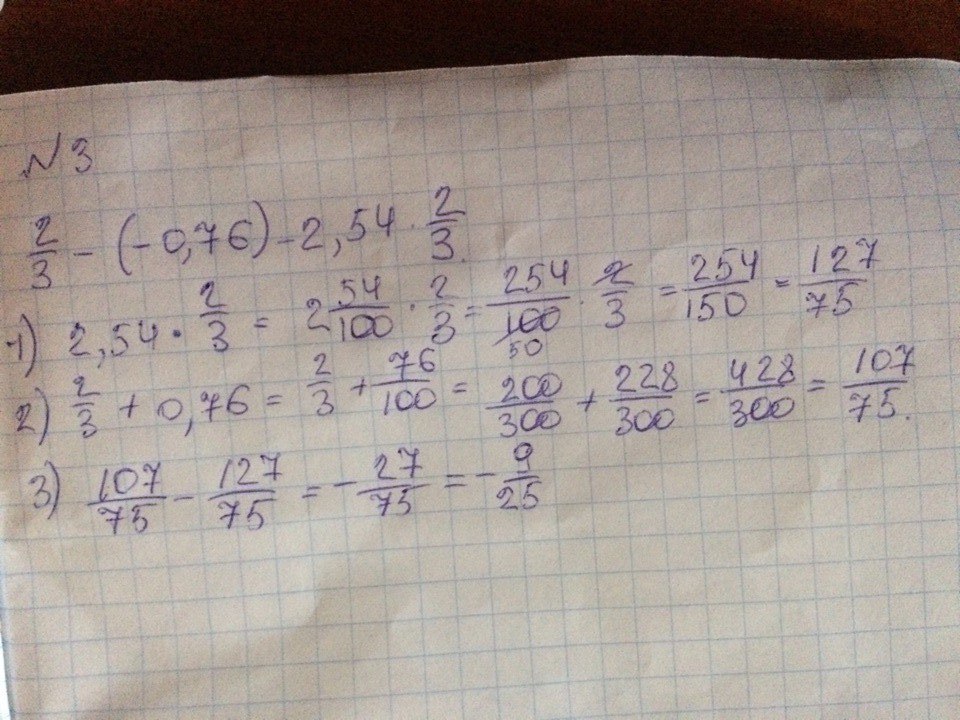 №3
2/3 - (-0,76) - 2,54 · 2/3.
1) 2,54 · 2/3 = 2 54/100 · 2/3 = 254/100 50 · 2/3 = 254/150 = 127/75
2) 2/3 + 0,76 = 2/3 + 76/100 = 200/300 + 228/300 = 428/300 = 107/75.
3) 107/75 - 127/75 = - 27/75 = - 9/25